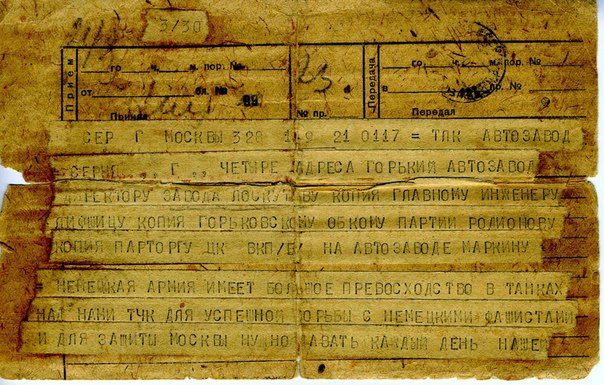 3/30
Прием
го ч. м. пор. №
от бл. №
Принял
№ пр.
Передача
го ч. м. пор. №
Передал
СЕР Г МОСКВЫ 320 21 0117 = ТЛК АВТОЗАВОД
СЕРИЯ ,,Г,, ЧЕТЫРЕ АДРЕСА ГОРЬКИЙ АВТОЗАВОД
ДИРЕКТОРУ ЗАВОДА ЛОСКУТОВУ КОПИЯ ГЛАВНОМУ ИНЖЕНЕРУ
ЛИФШИЦУ КОПИЯ ГОРЬКОВСКОМУ ОБКОМУ ПАРТИИ РОДИОНОВУ
КОПИЯ ПАРТОРГУ ЦК ВКП/Б/ НА АВТОЗАВОДЕ МАРКИНУ
= НЕМЕЦКАЯ АРМИЯ ИМЕЕТ БОЛЬШОЕ ПРЕВОСХОДСТВО В ТАНКАХ
НАД НАМИ ТЧК ДЛЯ УСПЕШНОЙ БОРЬБЫ С НЕМЕЦКИМИ ФАШИСТАМИ
И ДЛЯ ЗАЩИТЫ МОСКВЫ НУЖНО ДАВАТЬ КАЖДЫЙ ДЕНЬ НАШЕЙ